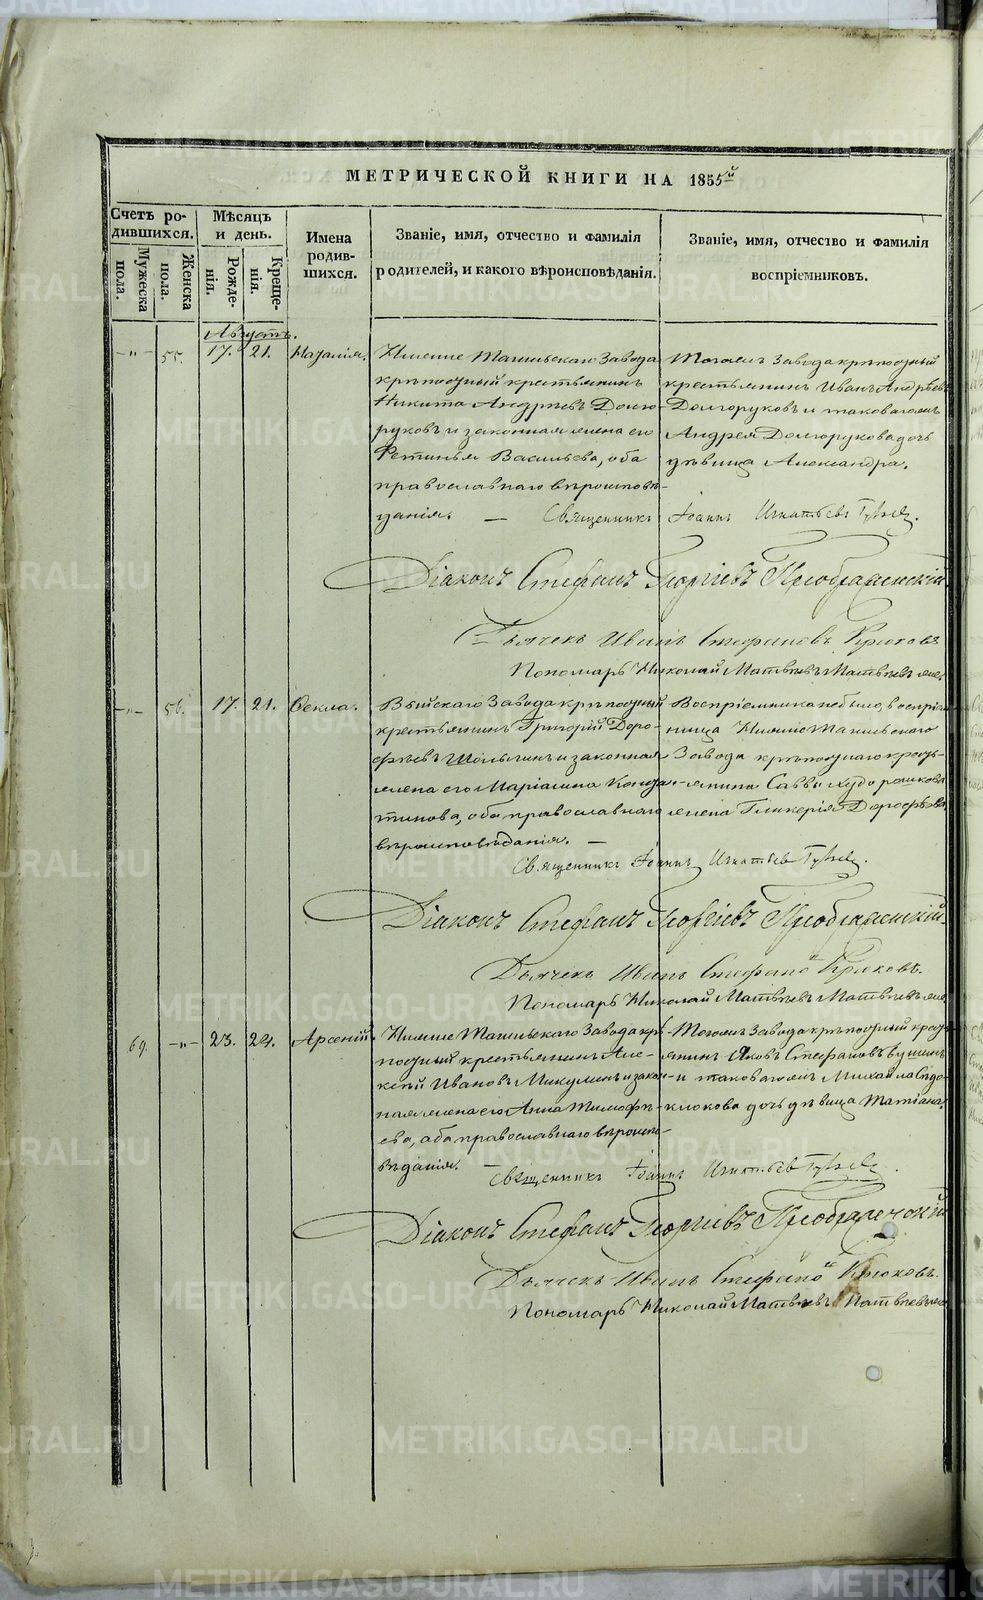 МЕТРИЧЕСКОЙ КНИГИ НА 1855й
Счетъ ро-
дившихся.
Мужеска
пола.
Женска
пола.
Мѣсяцъ
и день.
Рожде-
нія.
Креще-
нія.
Имена
родив-
шихся.
Званіе, имя, отчество и фамилія
родителей, и какого вѣроисповѣданія.
Званіе, имя, отчество и фамилія
воспріемниковъ.
Августъ.
—„— 55. 17. 21. Наталія.
Нижне Тагильскаго Завода
крѣпостный крестьянинъ
Никита Андреевъ Долго-
руковъ и законная жена его
Фетинья Васильева, оба
православнаго вѣроисповѣ-
данія. —
Тогожъ Завода крѣпостный
крестьянинъ Иванъ Андрѣевъ
Долгоруковъ и таковагожъ
Андрея Долгорукова дочь
дѣвица Александра.
Священникъ Іоаннъ Игнатьевъ
Діаконъ Стефанъ Георгіевъ Преображенскій
Дьячекъ Иванъ Стефановъ Крюковъ
Пономарь Николай Матвѣевъ Матвѣевъ
—„— 56. 17. 21. Ѳекла.
Выйскаго Завода крѣпостный
крестьянинъ Григорій Доро-
фѣевъ и законная
жена его Маріамна Констан-
тинова, оба православнаго
вѣроисповѣданія. —
Воспріемника небыло, воспріем-
ница Нижне Тагильскаго
Завода крѣпостнаго кресть-
янина Саввы Худорошкова
жена Гликерія Дорофѣева
Священникъ Іоаннъ Игнатьевъ
Діаконъ Стефанъ Георгіевъ Преображенскій
Дьячекъ Иванъ Стефано Крюковъ.
Пономарь Николай Матвѣевъ Матвѣевъ
69. —„— 23. 24. Арсеній.
Нижне Тагильскаго Завода крѣ-
постный крестьянинъ Але-
ксѣй Ивановъ Микулинъ и закон-
ная жена его Анна Тимофѣ-
ева, оба православнаго вѣроиспо-
вѣданія. —
Тогожъ Завода крѣпостный кресть-
янинъ Яковъ Стефановъ
и таковагожъ Михайла
дочь дѣвица Татіана.
Священникъ Іоаннъ Игнатьевъ
Діаконъ Стефанъ Георгіевъ Преображенскій
Дьячекъ Иванъ Стефано Крюковъ.
Пономарь Николай Матвѣевъ Матвѣевъ
METRIKI.GASO-URAL.RU